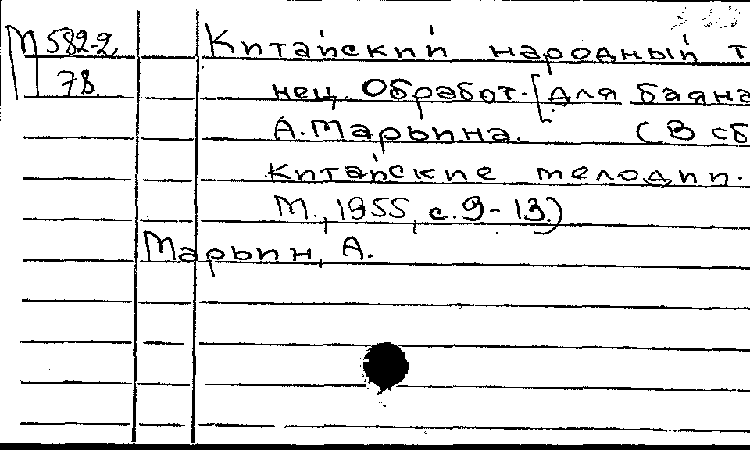 М 582-2 Китайский народный т
78 нец. Обработ. [для баяна
А. Марьина. (В сб
Китайские мелодии.
М., 1955, с. 9-13.)
Марьин, А.